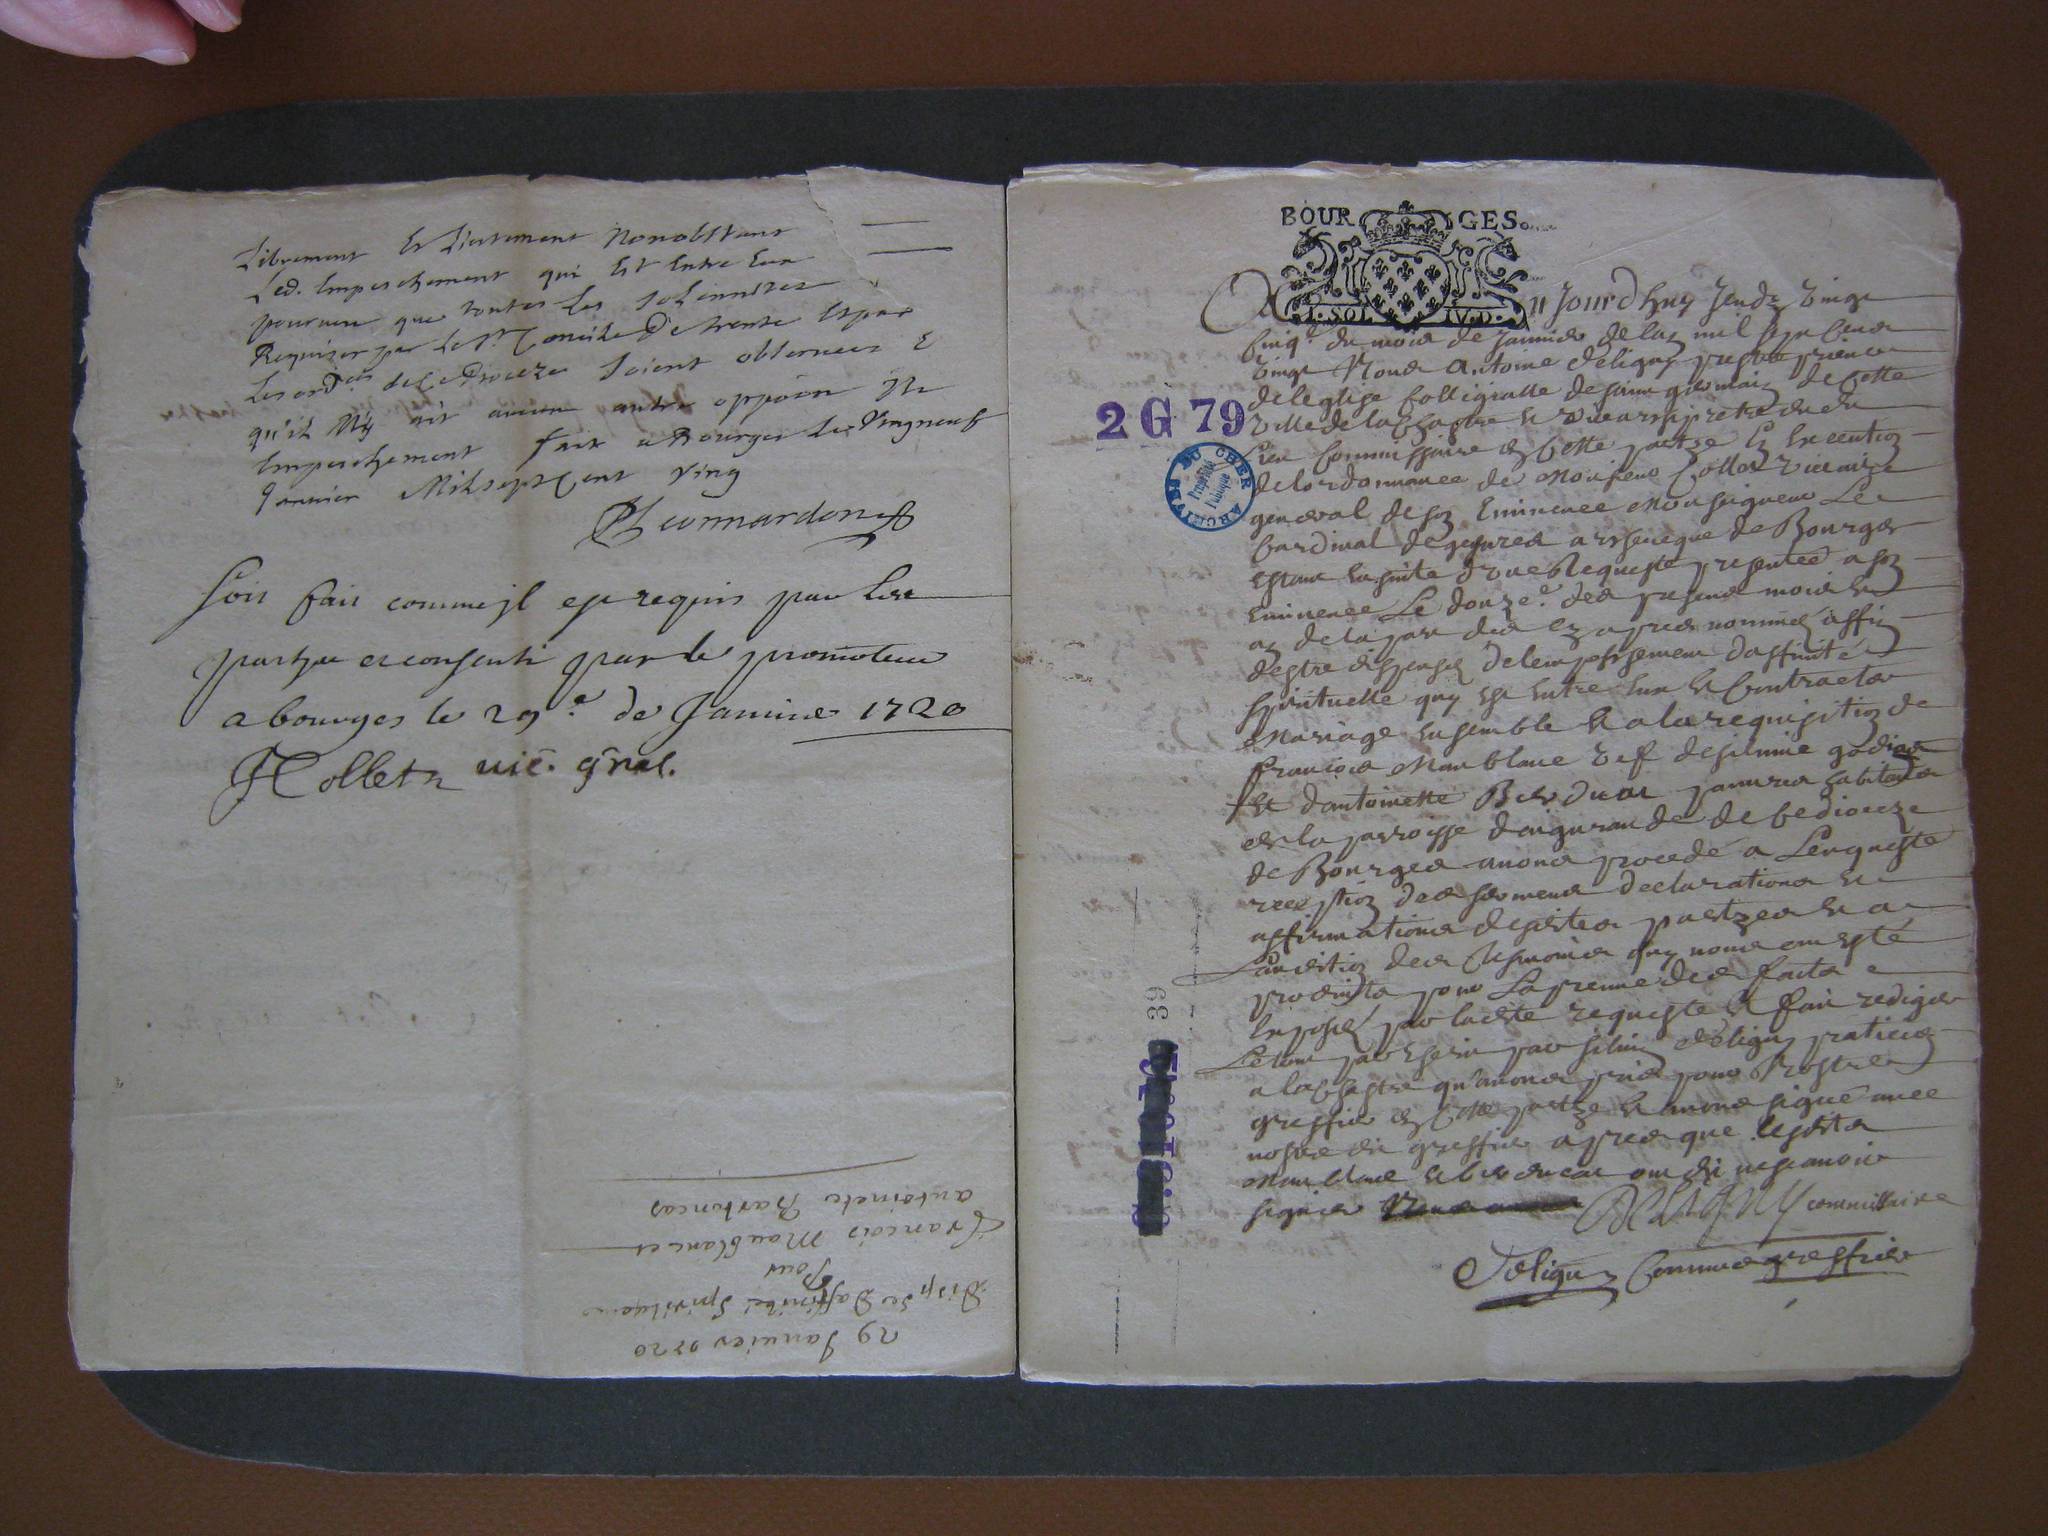 Librement et Licitement Nonobstant
Led. Empeschement qui Est Entre Eux
pourveu que toutes les solennitez
Requises par le St. Concile De trente Et par
Les ord.ces de Ce Dioceze soient observees &
qu'il N'y ait aucun autre oppoon Ne
Empeschement fait a Bourges Le Vingneuf
Janvier Mil sept Cent Ving
Leonnardon
soit fait comme jl est requis par Les
partye et consenti par le promoteur
a bourges le 29.e de Janvier 1720
Collet vic. gnal.
29 Janvier 1720
Disp. de Daffinité Spirituelle
Pour
francois Maublanc et
antoinete Barducas
BOURGES
2 SOL. IV. D.
Aujourdhuy Jeudy vingt
cinq.e du mois de Janvier de lan mil sept cens
vingt Nous Antoine Deligny prestre prieur
de leglise Collegialle de saint germain de Cette
ville de la Chastre et vicaire archipretre dudit
Lieu Commissaire en Cette partye En Execution
de lordonnance de Monsieur Collet vicaire
general de son Eminence Monseigneur Le
Cardinal de gesvres archeveque de Bourges
Estant En suite d'une Requeste presentée a son
Eminence Le douze.e des presens mois et
an de la part des cy apres nommés affin
destre dispensés de lempeschement daffinité
spirituelle quy est Entre Eux et Contracter
Mariage Ensemble Et a la requisition de
francois Maublanc vef de silvine godiau
Et dantoinette Berducat pauvres habitants
de la parroisse daigurande de Ce dioceze
de Bourges avons procedé a Lenqueste
reception des serments declarations et
affirmations desdites partyes et a
Laudition des tesmoins quy nous ont esté
produits pour La preuve des faits
Enposés par ladite requeste Et fait rediger
Le tout par escrit par silvin Deligny praticien
a la Chastre qu'avons pris pour Nostre
greffier en Cette partye et avons signé avec
nostre dit greffier apres que lesdits
Maublanc et berducat ont dit ne scavoir
signer
DELIGNY commissaire
Deligny Comme greffier
2 G 79
ARCHIVES DU CHER
Propriété
Publique
39